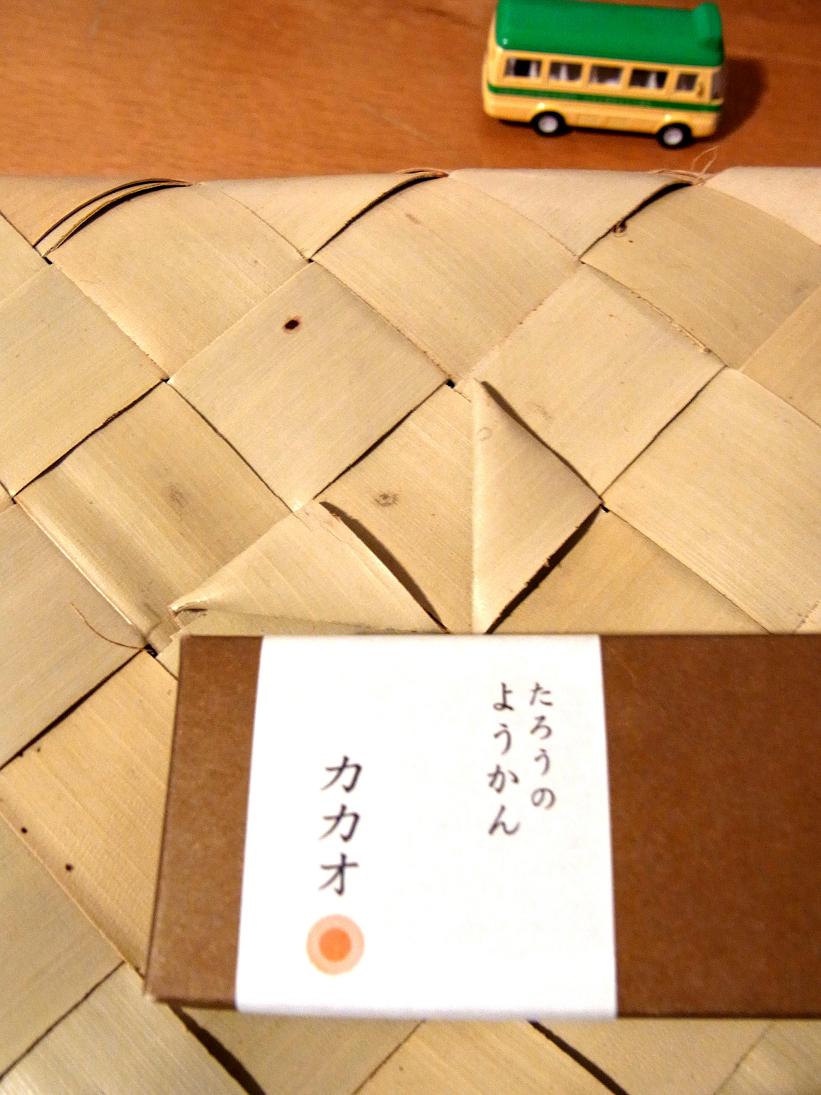 たろうの
ようかん
カカオ